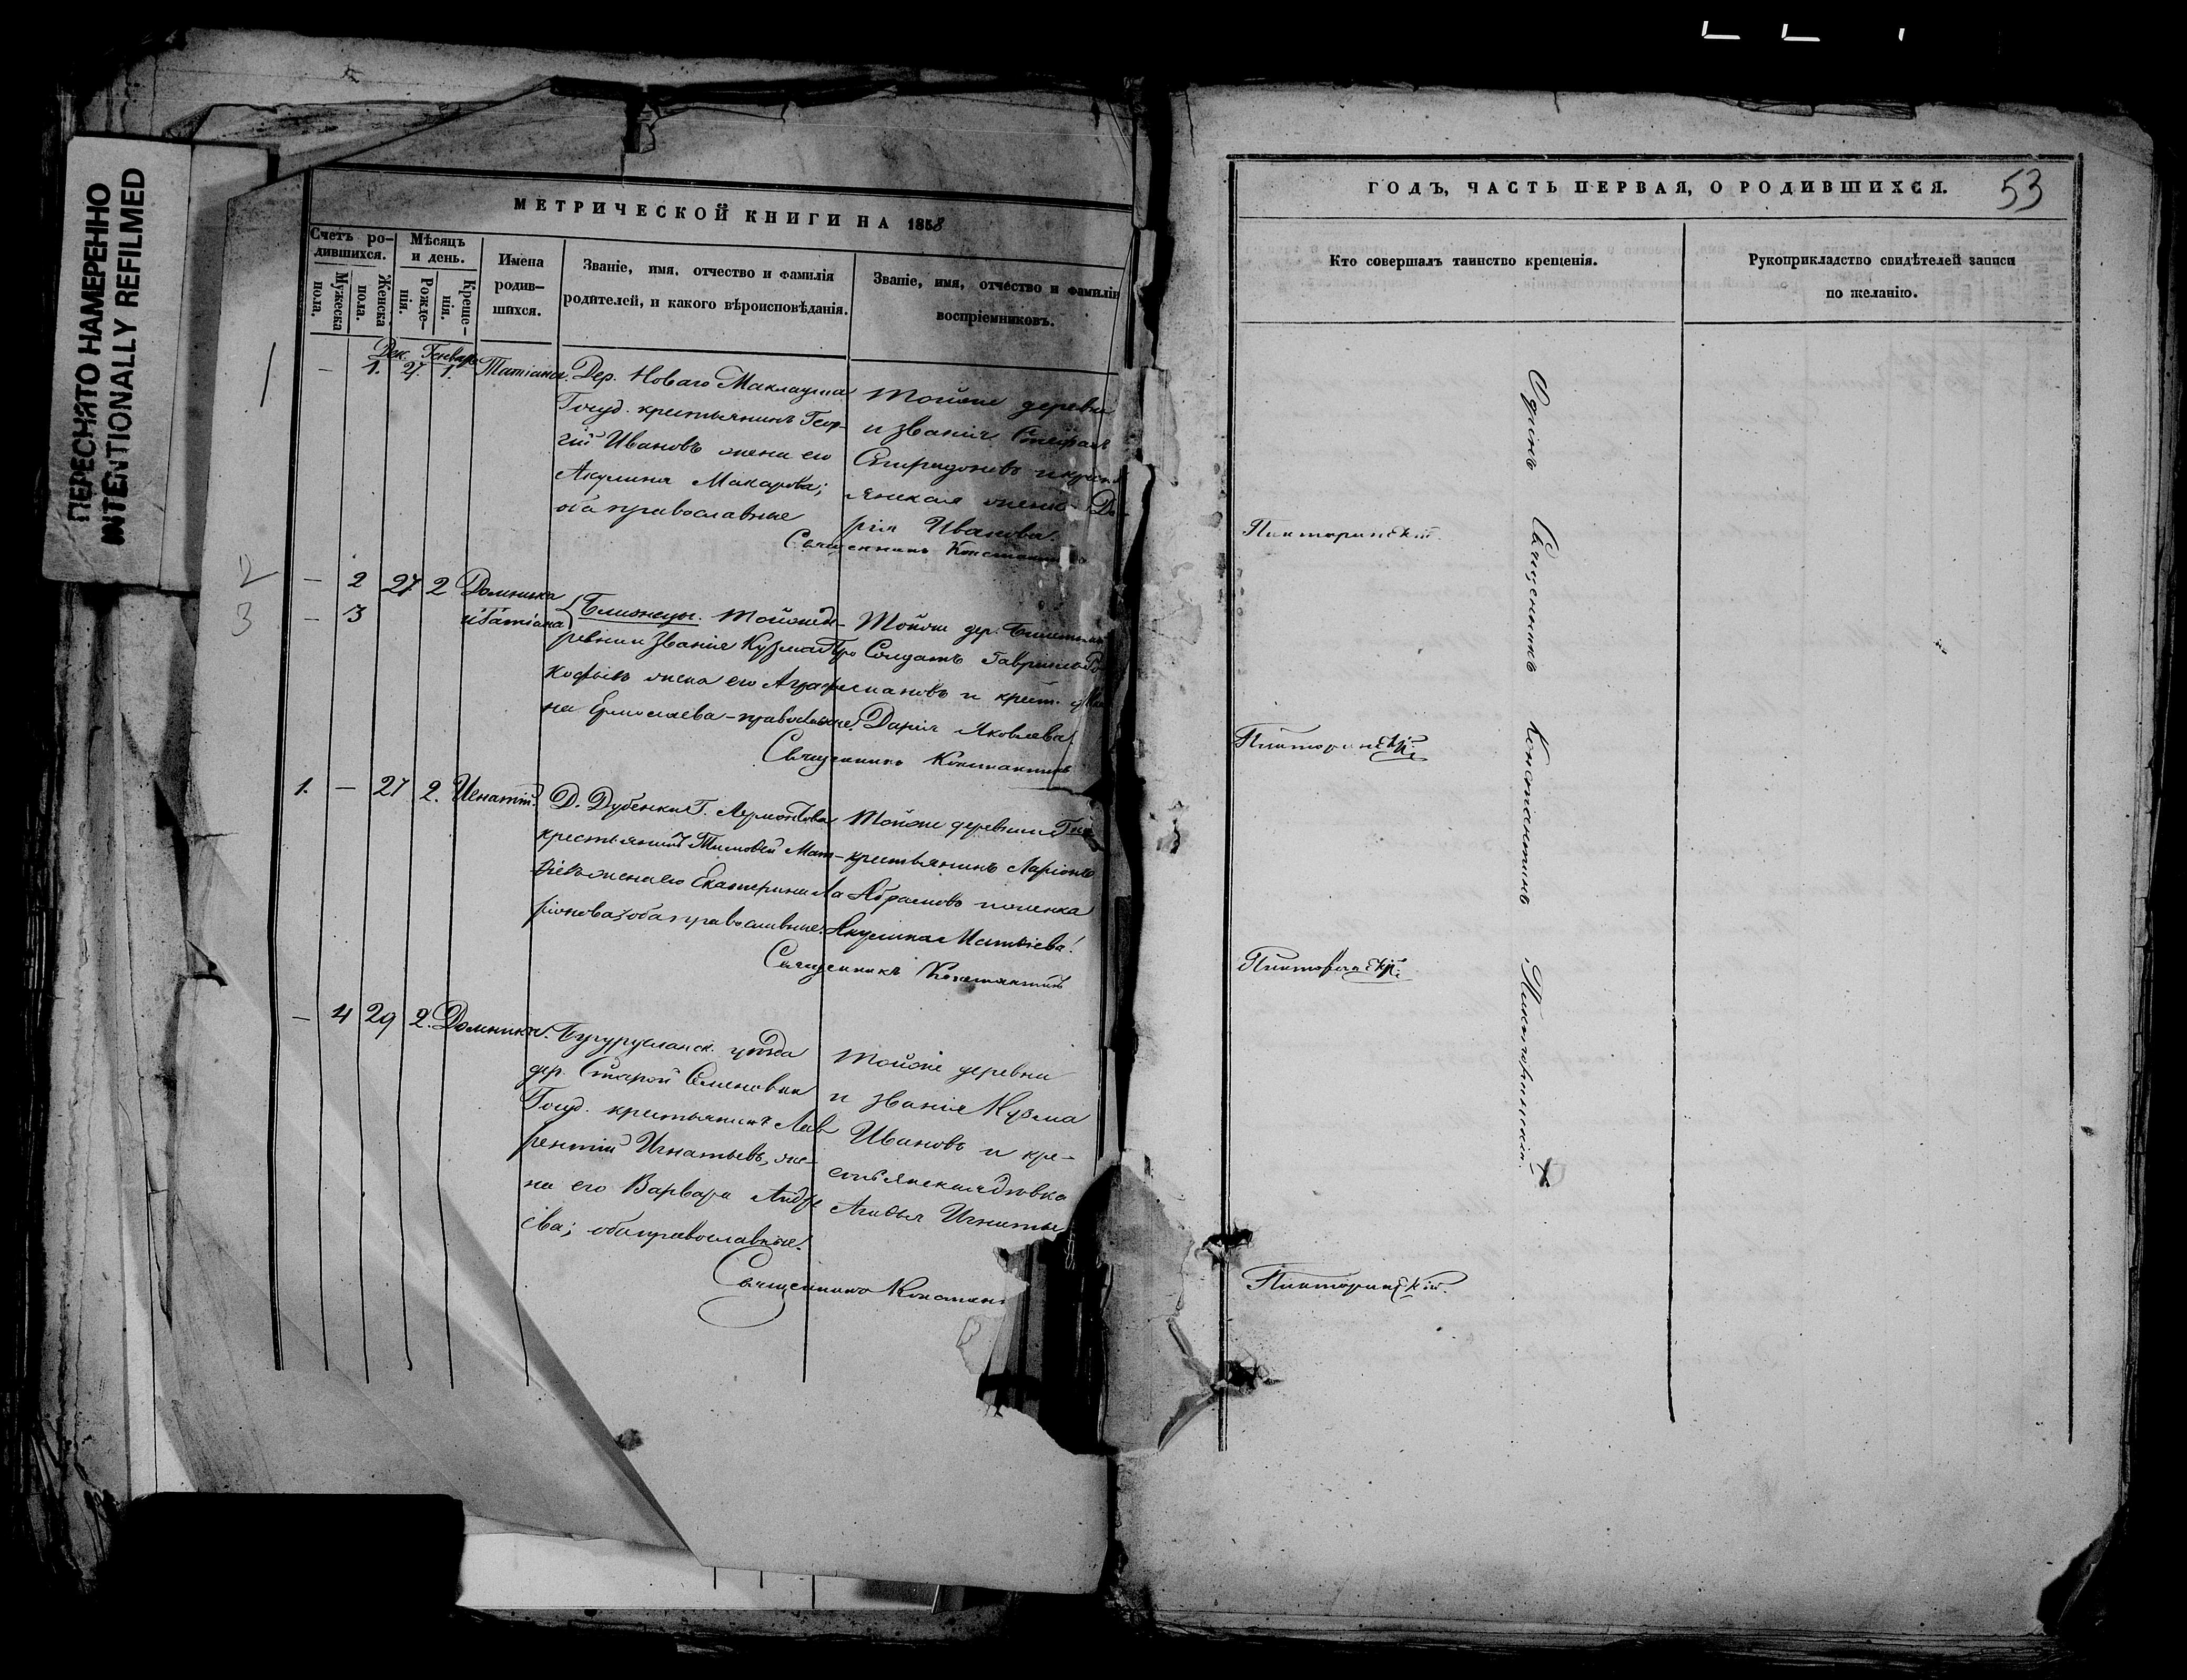 ПЕРЕСНЯТО НАМЕРЕННО
INTENTIONALLY REFILMED
МЕТРИЧЕСКОЙ КНИГИ НА 1858
Счетъ ро-
дившихся.
Мужеска
пола.
Женска
пола.
Мѣсяцъ
и день.
Рожде-
нія.
Креще-
нія.
Имена
родив-
шихся.
Званіе, имя, отчество и фамилія
родителей, и какого вѣроисповѣданія.
Званіе, имя, отчество и фамилія
воспріемниковъ.
Дек. Генваря
1
— 1. 27. 1. Татіана.
Дер. Новаго Маклауша
Госуд. крестьянинъ Геор-
гій Ивановъ жена его
Акулина Макарова;
оба православные
Тойже деревни
и званія Стефанъ
Спиридоновъ и крест
янская жена Да-
рія Иванова.
Священникъ Константинъ
2
— 2 27 2 Домника
3
— 3 и Татіана
Тойже де-
ревни и званія Кузма Про
кофьевъ жена его Агафи
на Ермолаева - православные.
Тойже дер.
Солдатъ Гавриилъ
мановъ и крест.
Дарія Яковлева.
Священникъ Константинъ
1. — 27 2. Игнатій.
Д. Дубенки Г. Лермонтова
крестьянинъ Тимофей Мат-
вѣевъ жена его Екатерина Ла
ріонова; оба православные.
Тойже деревни
крестьянинъ Ларіонъ
Абрамовъ и
Акулина Матвѣева.
Священникъ Константинъ
— 4 29 2. Домника.
Бугурусланск. уѣзда
дер. Старой Семеновки
Госуд. крестьянинъ Лав
рентій Игнатьевъ, же-
на его Варвара Андре
ева; оба православные.
Тойже деревни
и званія Кузма
Ивановъ и кре-
стьянская дѣвка
Агафья Игнатье
Священникъ Константи
ГОДЪ, ЧАСТЬ ПЕРВАЯ, О РОДИВШИХСЯ.
53
Кто совершалъ таинство крещенія.
Рукоприкладство свидѣтелей записи
по желанію.
Пикторинскій.
Пикторинскій.
Пикторинскій.
Пикторинскій.
Одинъ Священникъ Константинъ Пикторинскій.